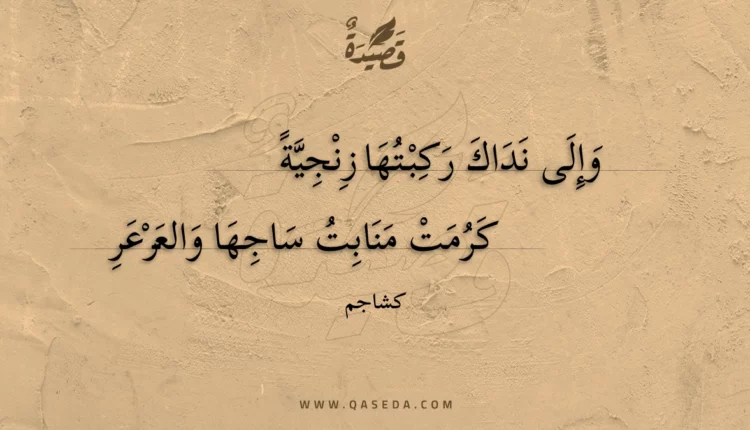 قَصِيدَةٌ
وَإِلَى نَدَاكَ رَكِبْتُهَا زِنْجِيَّةً
كَرُمَتْ مَنَابِتُ سَاجِهَا وَالعَرْعَرِ
كشاجم
WWW.QASEDA.COM